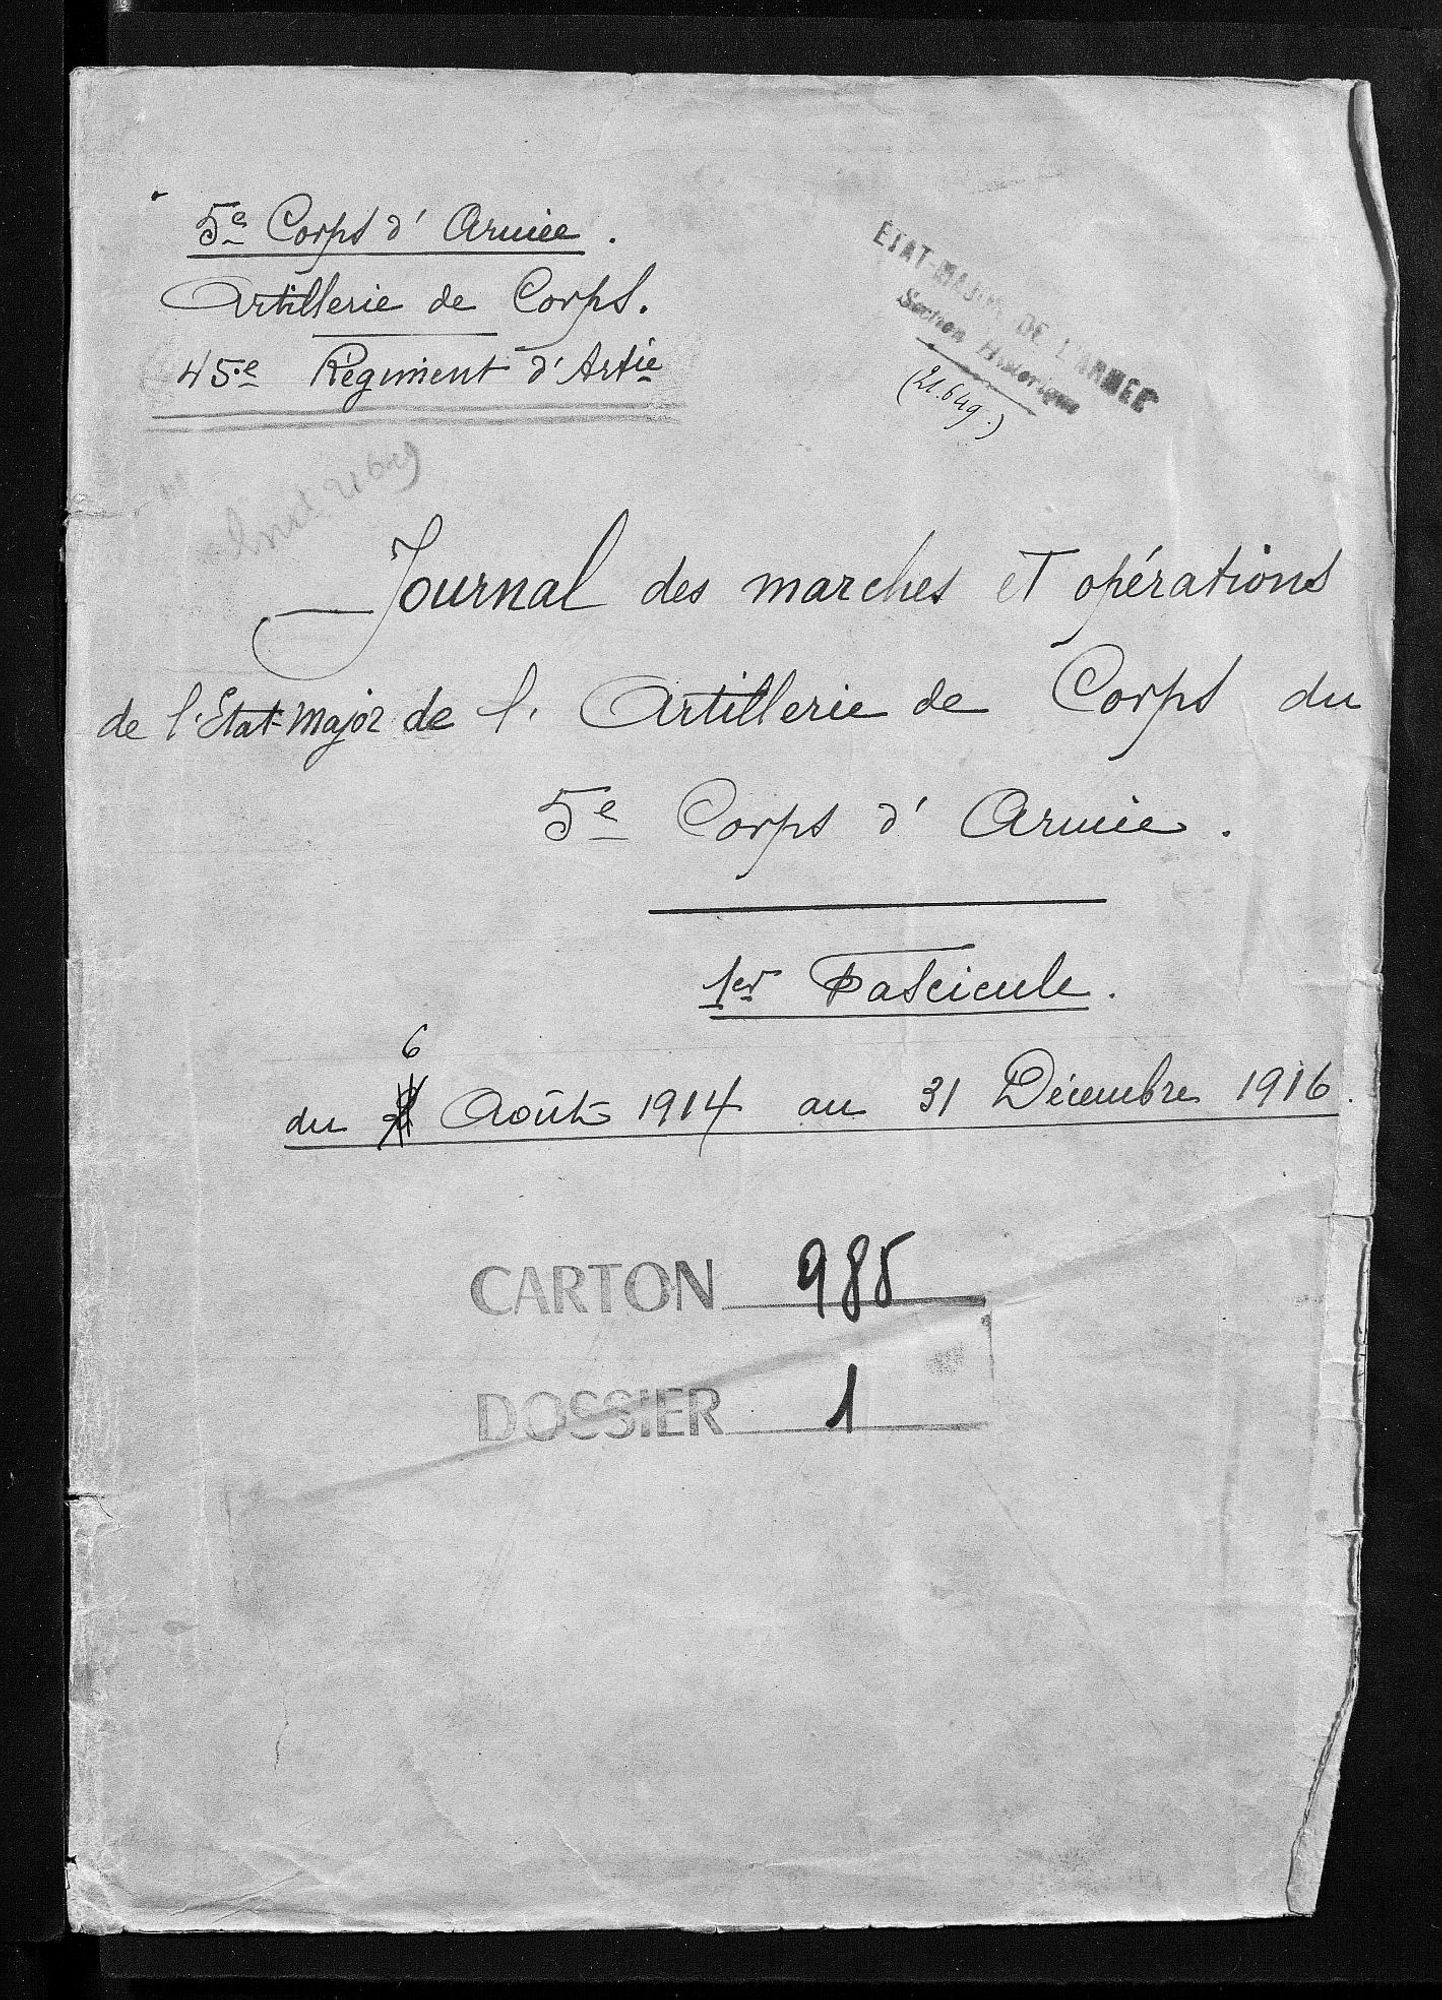 5e Corps d'Armée.
Artillerie de Corps.
45e Régiment d'Artie
ETAT-MAJOR DE L'ARMEE
Section Historique
(21.649.)
21649
Journal des marches et opérations
de l'Etat-Major de l'Artillerie de Corps du
5e Corps d'Armée.
1er Fascicule.
6
du Août 1914 au 31 Décembre 1916.
CARTON 985
DOSSIER 1